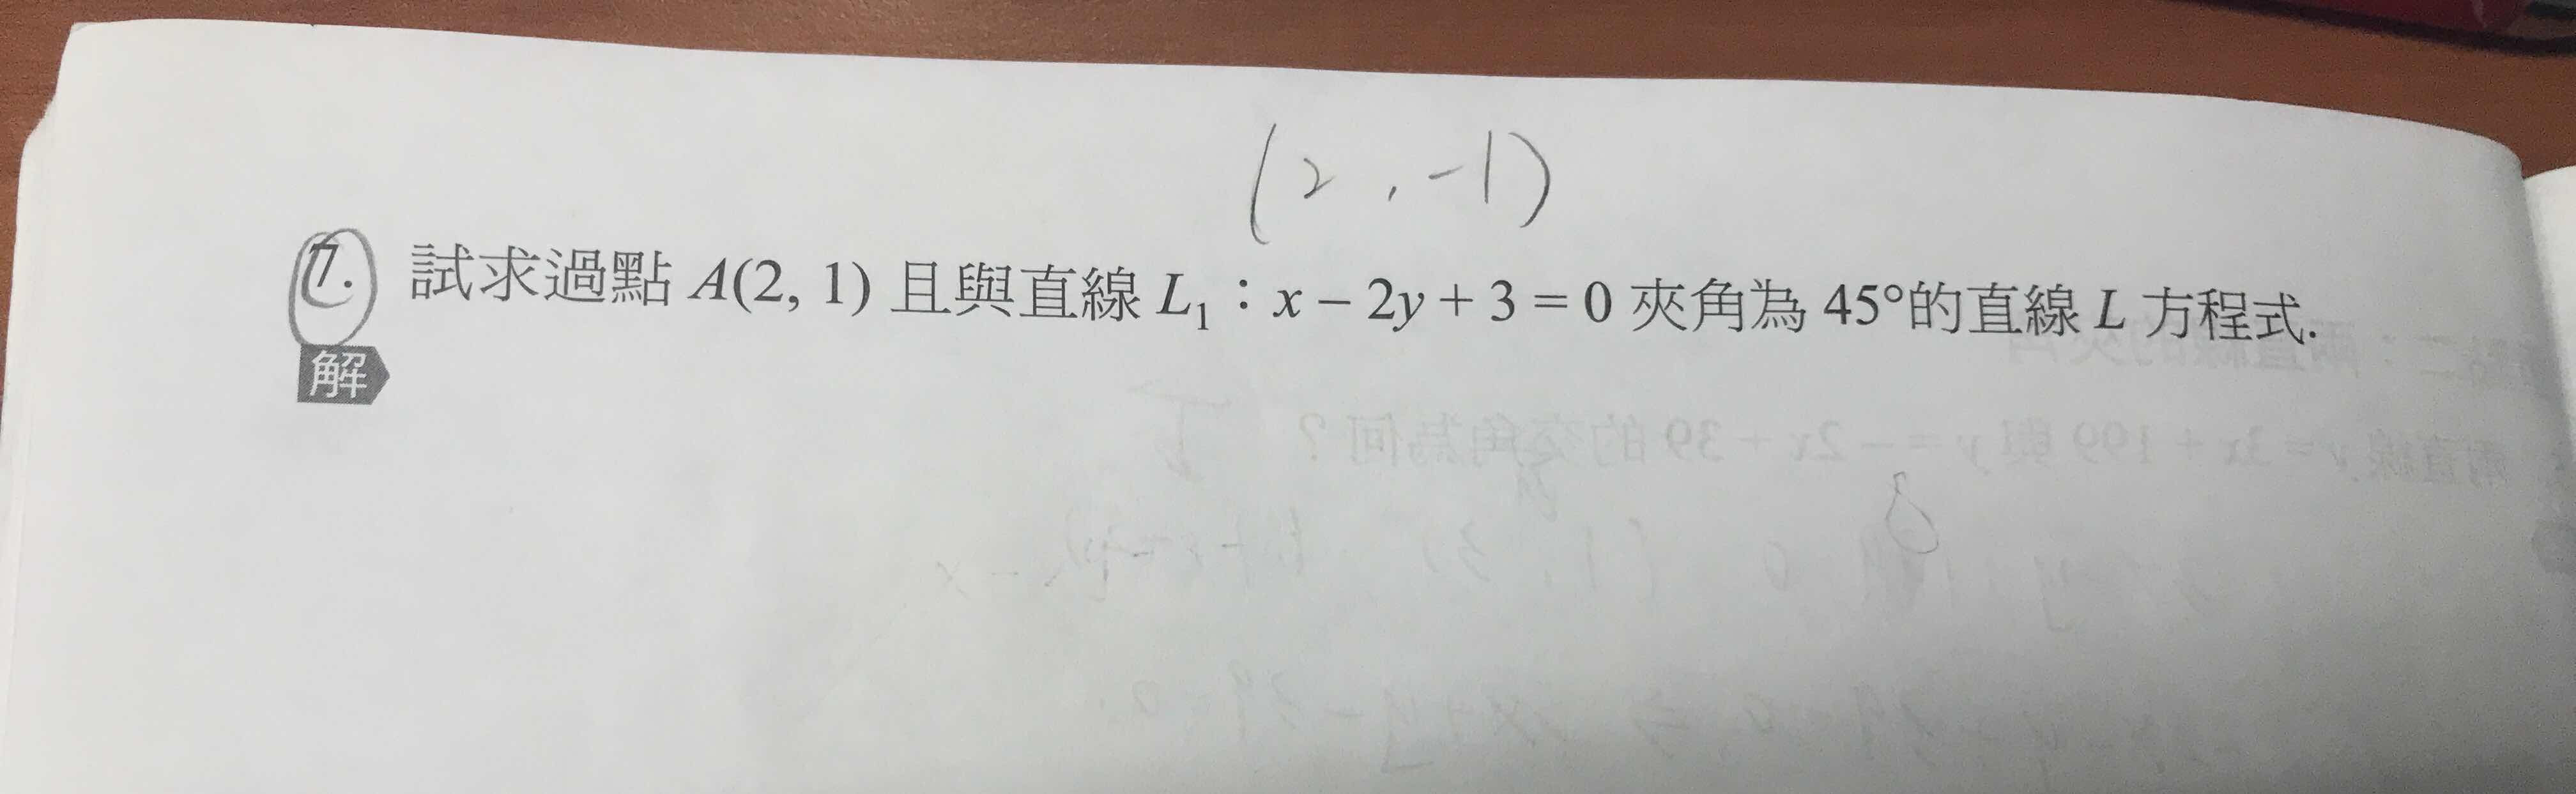 (2, -1)
7. 試求過點 A(2, 1) 且與直線 L₁：x − 2y + 3 = 0 夾角為 45°的直線 L 方程式.
解